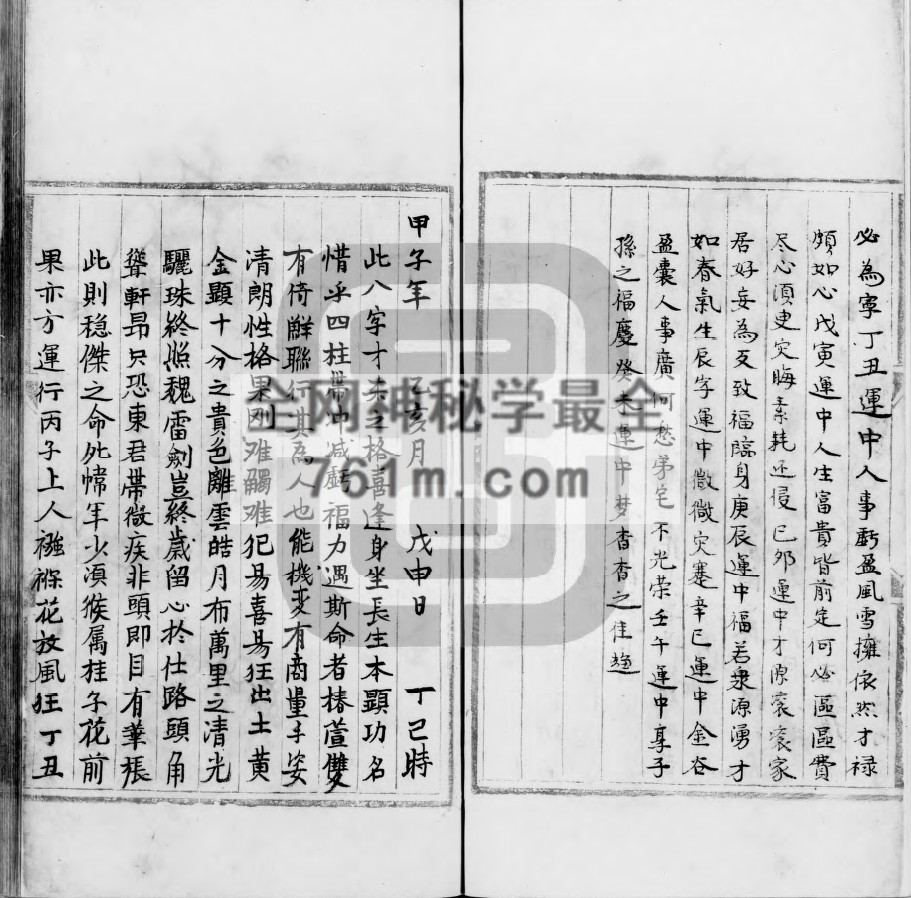 必為寧丁丑運中人事虧盈風雪擁依然才祿
頗如心戊寅運中人生富貴皆前定何必區區費
尽心須史灾晦素耗还侵己夘運中才源衮衮家
居好妄為支致福臨身庚辰運中福若衆源湧才
如春氣生辰字運中微微灾蹇辛巳運中金谷
盈囊人事廣何愁弟宅不光荣壬午運中享子
孫之福慶癸未運中梦杳杳之佳趣
甲子年 乙亥月 戊申日 丁巳時
此八字才杀之格喜逢身坐長生本顯功名
惜乎四柱帶冲减虧福力遇斯命者椿萱雙
有倚鮮聯行其為人也能機变有商量手姿
清朗性格果刚难觸难犯易喜易狂出土黄
金顯十分之貴色離雲皓月布萬里之清光
驪珠終照魏雷劍豈終歲留心扵仕路頭角
聳軒昂只恐東君帶微疾非頭即目有華根
此則穏傑之命死幃年少須候属桂子花前
果亦方運行丙子上人襁褓花放風狂丁丑
全网神秘学最全
761m.com